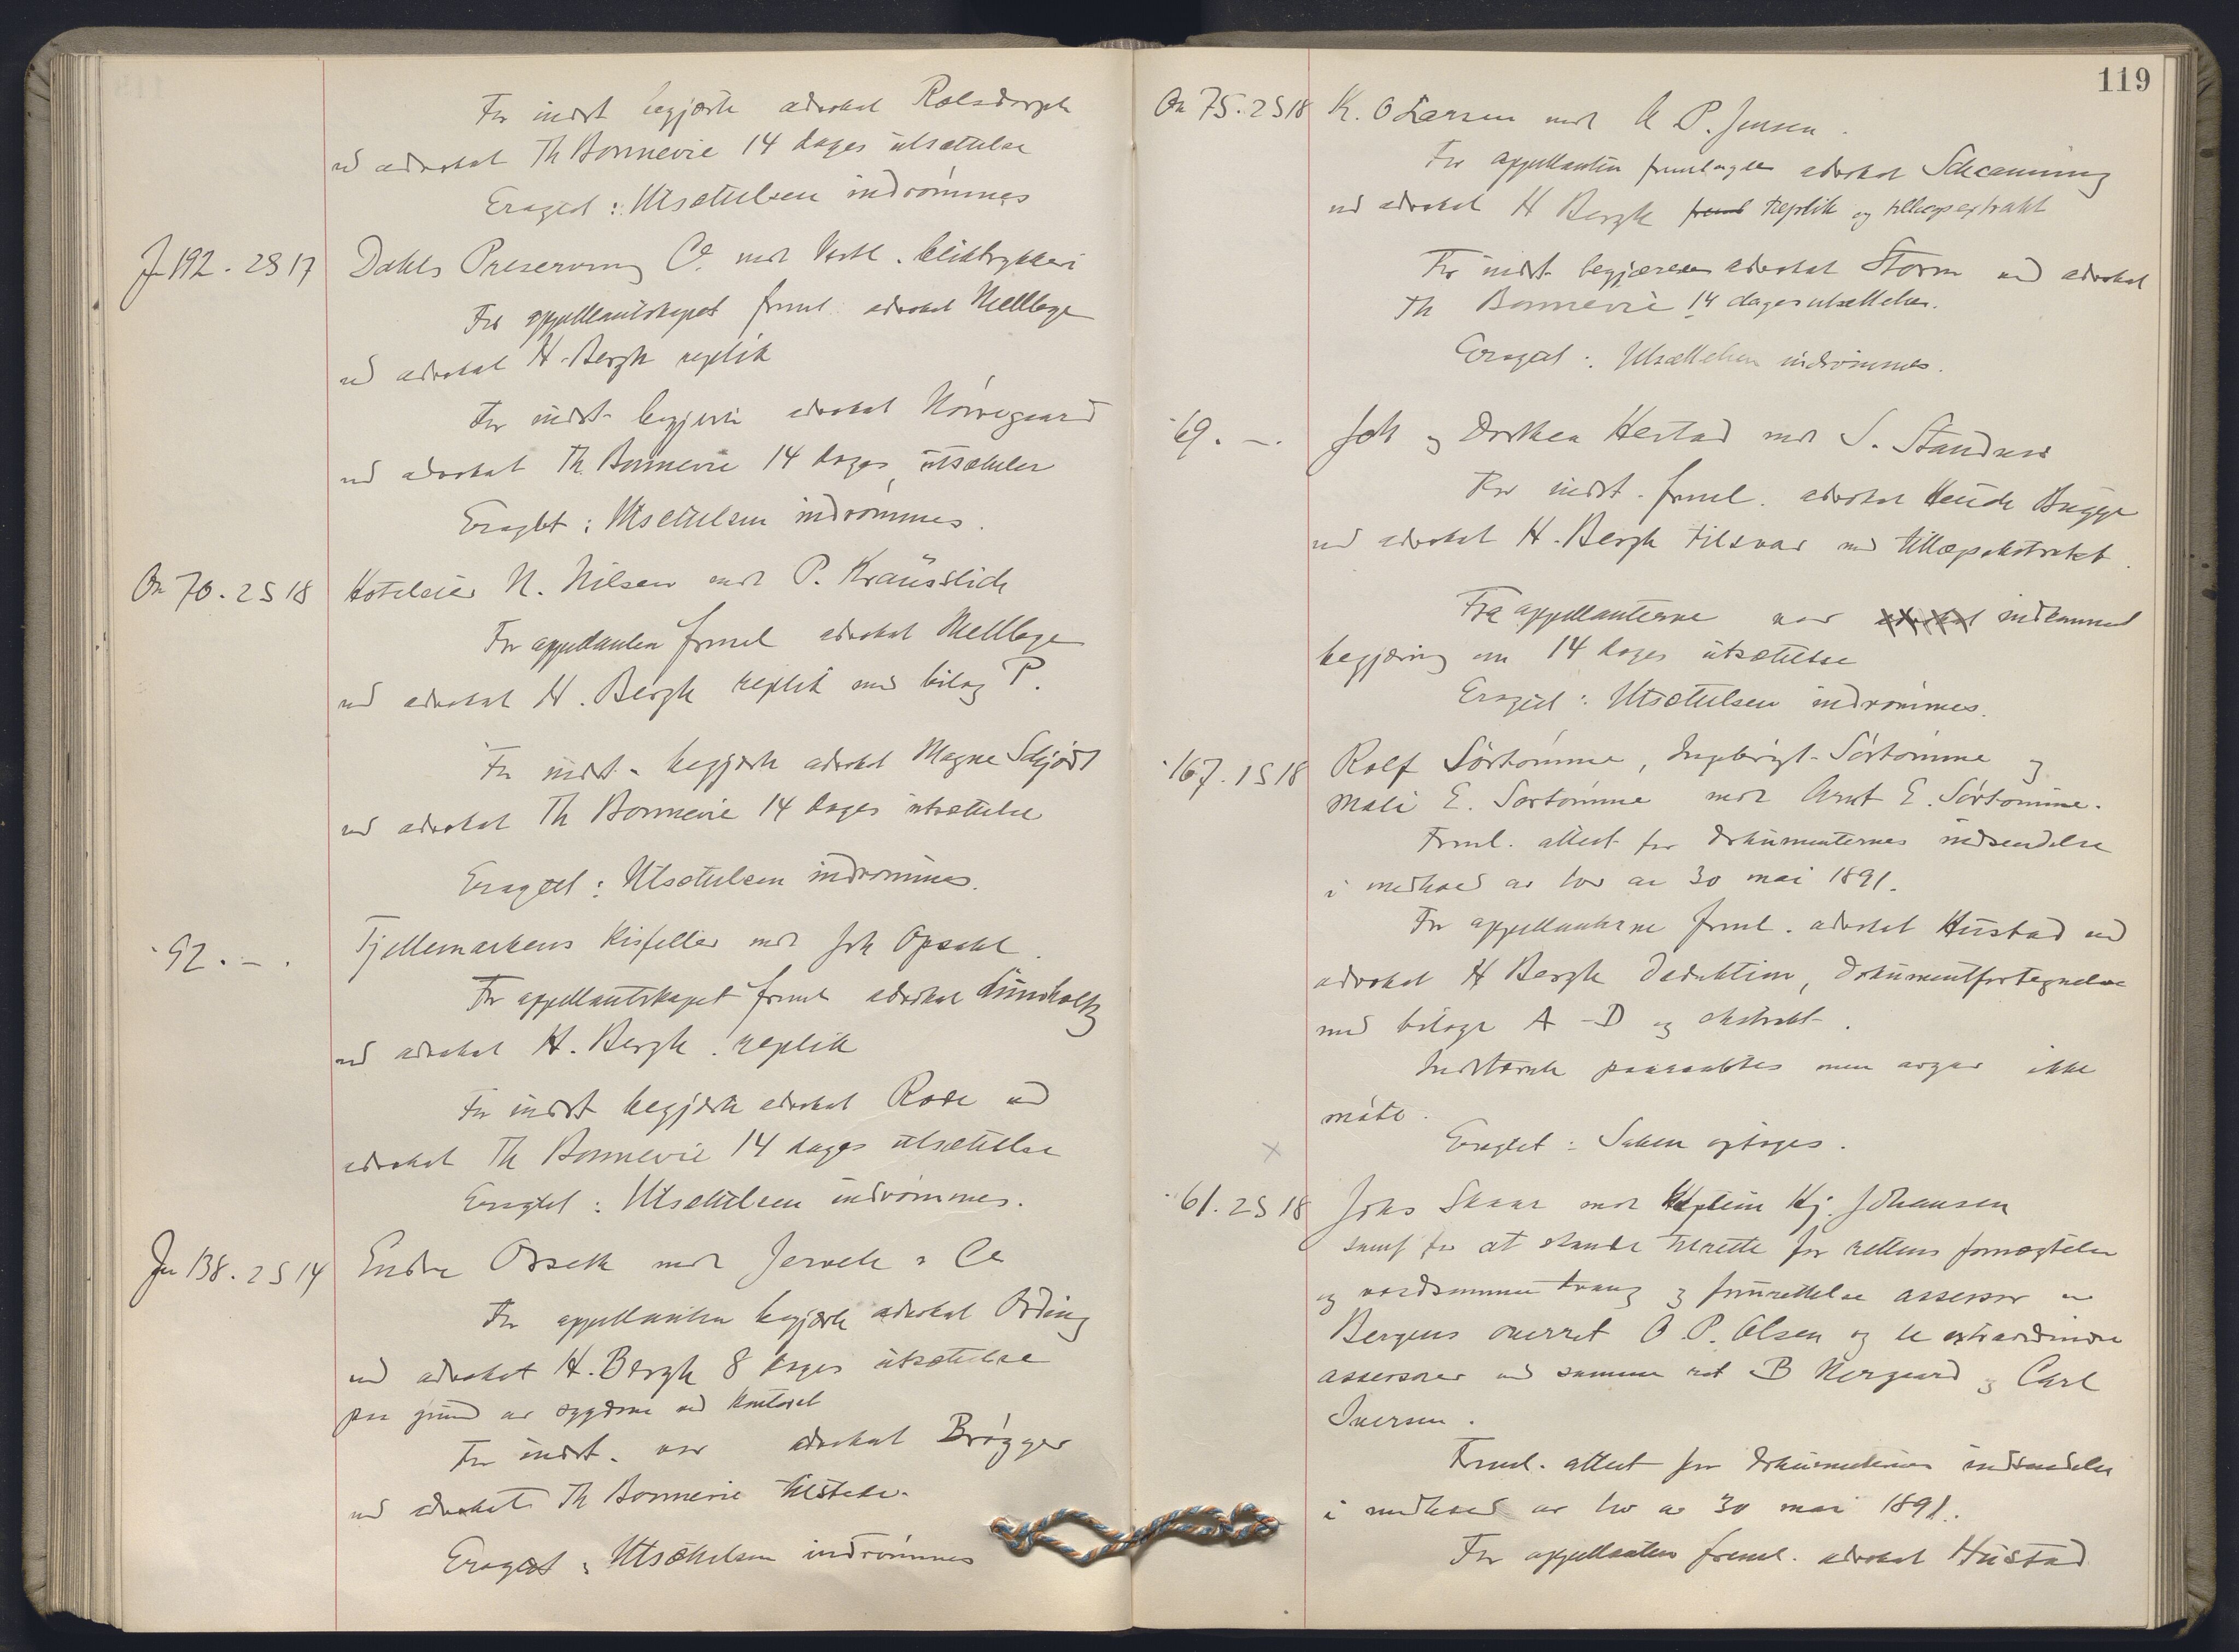 For indst begjærte advokat Rolsdorph
ved advokat Th Bonnevie 14 dages utsættelse
Eragtet: Utsættelsen indrømmes
J 192. 2S 17 Dahls Preserving Co. mot Vestl. bliktrykkeri
For appellantskapet freml advokat Mellbye
ved advokat H. Bergh replik
For indst. begjærte advokat Nørregaard
ved advokat Th. Bonnevie 14 dages utsættelse
Eragtet: Utsættelsen indrømmes.
On 70. 2S 18 Hoteleier N. Nilsen mot P. Kräusslich
For appellanten freml advokat Mellbye
ved advokat H. Bergh replik med bilag P.
For indst. begjærte advokat Magne Schjødt
ved advokat Th Bonnevie 14 dages utsættelse
Eragtet: Utsættelsen indrømmes.
" 92. – . Fjellemarkens kisfelter mot Joh Opsahl.
For appellantskapet freml advokat Lumholtz
ved advokat H. Bergh. replik
For indst begjærte advokat Rode ved
advokat Th Bonnevie 14 dages utsættelse
Eragtet: Utsættelsen indrømmes.
Ju 138. 2S 14 Endre Orseth mot Jervell & Co
For appellanten begjærte advokat Ording
ved advokat H. Bergh 8 dages utsættelse
paa grund av sygdom ved kontoret
For indst. var advokat Brøgger
ved advokat Th Bonnevie tilstede.
Eragtet: Utsættelsen indrømmes
119
On 75. 2S 18 K. O Larsen mot A P. Jensen.
For appellanten fremlagde advokat Scheaming
ved advokat H Bergh freml replik og tillægsextrakt
For indst. begjærede advokat Storm ved advokat
Th Bonnevie 14 dages utsættelse.
Eragtet: Utsættelsen indrømmes.
" 69. – . Joh og Dorthea Herstad mot S. Standnes
For indst. freml. advokat Heide Bugge
ved advokat H. Bergh tilsvar med tillægsekstrakt.
Fra appellanterne var advokat indkommet
begjæring om 14 dages utsættelse
Eragtet: Utsættelsen indrømmes.
" 167. 1S 18 Rolf Sørtømme, Ingebrigt Sørtømme og
Mali E. Sørtømme mot Arnt E. Sørtømme.
Freml. attest for dokumenternes indsendelse
i medhold av lov av 30 mai 1891.
For appellanterne freml. advokat Hustad ved
advokat H Bergh deduktion, dokumentfortegnelse
med bilage A – D og ekstrakt.
Indstevnte paaraabtes men avgav ikke
møte.
Eragtet: Saken optages.
" 61. 2S 18 Johs Skaar mot Kaptein Kj. Johansen
samt for at stande tilrette for rettens forvægtelse
og tvang og forurettelse assessor i
Bergens overret O P. Olsen og de extraordinære
assessorer ved samme ret B Nergaard og Carl
Iversen.
Freml. attest for dokumenternes indsendelse
i medhold av lov av 30 mai 1891.
For appellanten freml. advokat Hustad